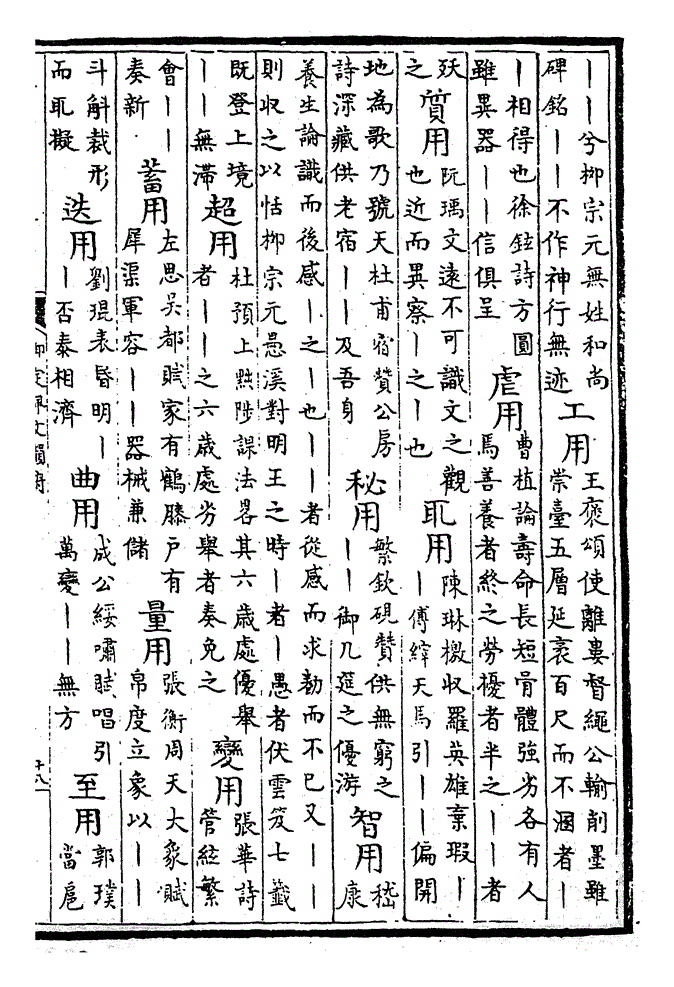 ｜｜兮柳宗元無姓和尚
碑銘｜｜不作神行無迹
工用
王褒頌使離婁督繩公輸削墨雖
崇臺五層延袤百尺而不溷者｜
｜相得也徐鉉詩方圓
雖異器｜｜信俱呈
虐用
曹植論壽命長短骨體強劣各有人
馬善養者終之勞擾者半之｜｜者
殀
之
質用
阮瑀文遠不可識文之觀
也近而異察｜之｜也
取用
陳琳檄收羅英雄棄瑕｜
｜傅縡天馬引｜｜偏開
地為歌乃號天杜甫宿贊公房
詩深藏供老宿｜｜及吾身
秘用
繁欽硯贊供無窮之
｜｜御几筵之優游
智用
嵇
康
養生論識而後感｜之｜也｜｜者從感而求勌而不已又｜｜
則収之以恬柳宗元愚溪對明王之時｜者｜愚者伏雲笈七籤
既登上境
｜｜無滯
超用
杜預上黜陟課法畧其六歲處優舉
者｜｜之六歲處劣舉者奏免之
變用
張華詩
管絃繁
會｜｜
奏新
蓄用
左思吳都賦家有鶴膝戶有
犀渠軍容｜｜器械兼儲
量用
張衡周天大象賦
帛度立象以｜｜
斗斛裁形
而取擬
迭用
劉琨表昏明｜
｜否泰相濟
曲用
成公綏嘯賦唱引
萬變｜｜無方
至用
郭璞
當扈
御定佩文韻府
十八